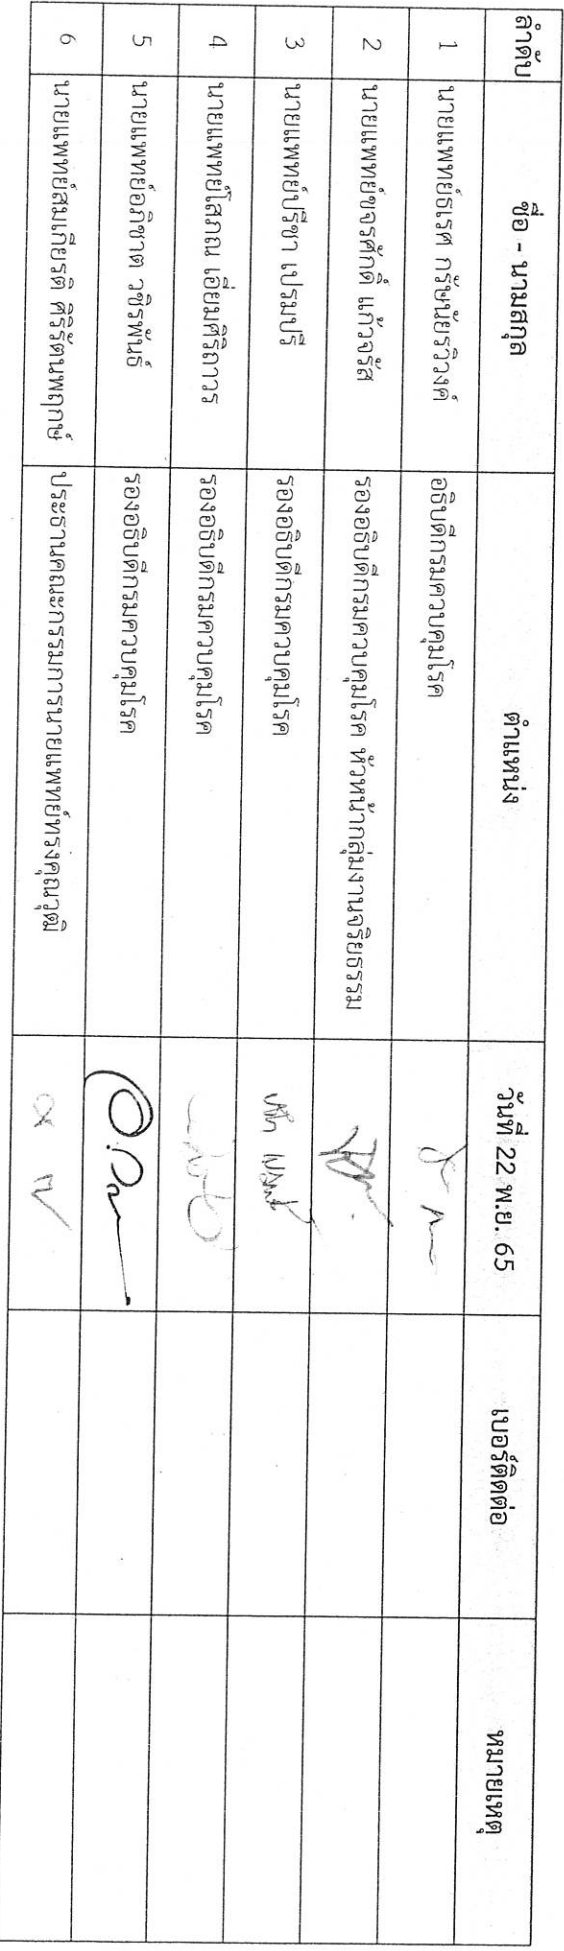 ลำดับ ชื่อ - นามสกุล ตำแหน่ง วันที่ 22 พ.ย. 65 เบอร์ติดต่อ หมายเหตุ
1 นายแพทย์ธเรศ กรัษนัยรวิวงค์ อธิบดีกรมควบคุมโรค
2 นายแพทย์ขจรศักดิ์ แก้วจรัส รองอธิบดีกรมควบคุมโรค หัวหน้ากลุ่มงานจริยธรรม
3 นายแพทย์ปรีชา เปรมปรี รองอธิบดีกรมควบคุมโรค
4 นายแพทย์โสภณ เอี่ยมศิริถาวร รองอธิบดีกรมควบคุมโรค
5 นายแพทย์อภิชาต วชิรพันธ์ รองอธิบดีกรมควบคุมโรค
6 นายแพทย์สมเกียรติ ศิริรัตนพฤกษ์ ประธานคณะกรรมการนายแพทย์ทรงคุณวุฒิ